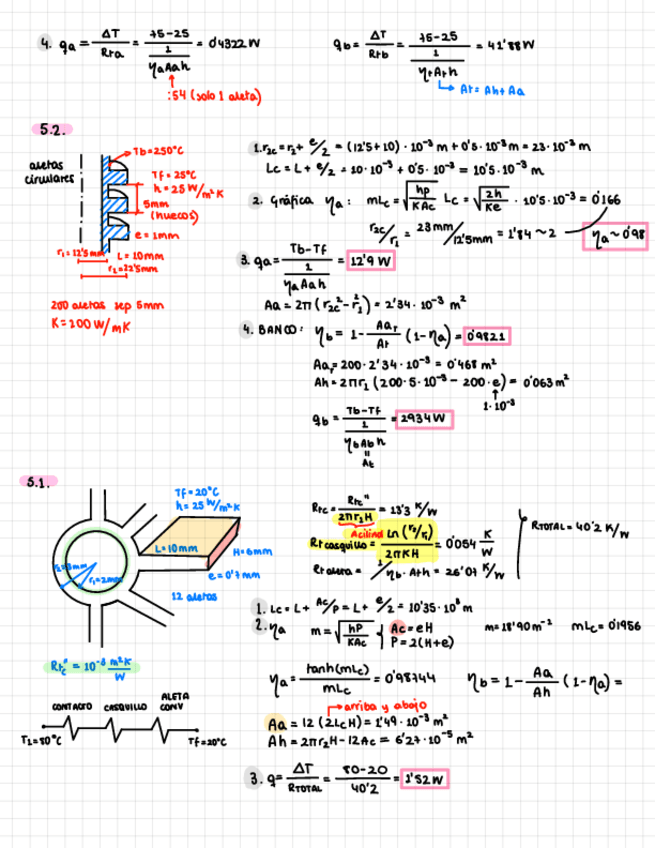 4. qa = ΔT / Rta = 75-25 / (1 / ηaAah) = 0'4322 W
:54 (solo 1 aleta)
qb = ΔT / Rtb = 75-25 / (1 / ηtAth) = 41'88 W
At = Ah + Aa
5.2.
aletas circulares
Tb = 250°C
Tf = 25°C
h = 25 W/m²K
5mm (huecos)
e = 1mm
r1 = 12'5mm L = 10mm
r2 = 22'5mm
200 aletas sep 5mm
K = 200 W/mK
1. r2c = r2 + e/2 = (12'5+10) · 10⁻³ m + 0'5 · 10⁻³ m = 23 · 10⁻³ m
Lc = L + e/2 = 10 · 10⁻³ + 0'5 · 10⁻³ = 10'5 · 10⁻³ m
2. Gráfica ηa : mLc = √(hp / KAc) Lc = √(2h / Ke) · 10'5 · 10⁻³ = 0'166
r2c / r1 = 23mm / 12'5mm = 1'84 ~ 2
ηa ~ 0'98
3. qa = Tb - Tf / (1 / ηaAah) = 12'9 W
Aa = 2π (r2c² - r1²) = 2'34 · 10⁻³ m²
4. BANCO: ηb = 1 - AaT / At (1 - ηa) = 0'9821
AaT = 200 · 2'34 · 10⁻³ = 0'468 m²
Ah = 2πr1 (200 · 5 · 10⁻³ - 200 · e) = 0'063 m²
1 · 10⁻³
qb = Tb - Tf / (1 / ηbAbh) = 2934 W
At
5.1.
Tf = 20°C
h = 25 W/m²K
L = 10mm
H = 6mm
e = 0'7mm
r2 = 3mm
r1 = 2mm
12 aletas
Rtc'' = 10⁻³ m²K / W
CONTACTO CASQUILLO ALETA CONV
T1 = 80°C
Tf = 20°C
Rtc = Rtc'' / 2πr2H = 13'3 K/W
Acilind
Rtcasquillo = Ln (r2/r1) / 2πKH = 0'054 K/W
Rtaleta = 1/ηb · Ath = 26'07 K/W
RTOTAL = 40'2 K/W
1. Lc = L + Ac/P = L + e/2 = 10'35 · 10³ m
2. ηa m = √(hP / KAc) { Ac = eH
P = 2(H+e)
m = 18'90 m⁻¹ mLc = 0'1956
ηa = tanh(mLc) / mLc = 0'98744
ηb = 1 - Aa / Ah (1 - ηa) =
arriba y abajo
Aa = 12 (2LcH) = 1'49 · 10⁻³ m²
Ah = 2πr2H - 12Ac = 6'27 · 10⁻⁵ m²
3. q = ΔT / RTOTAL = 80-20 / 40'2 = 1'52 W